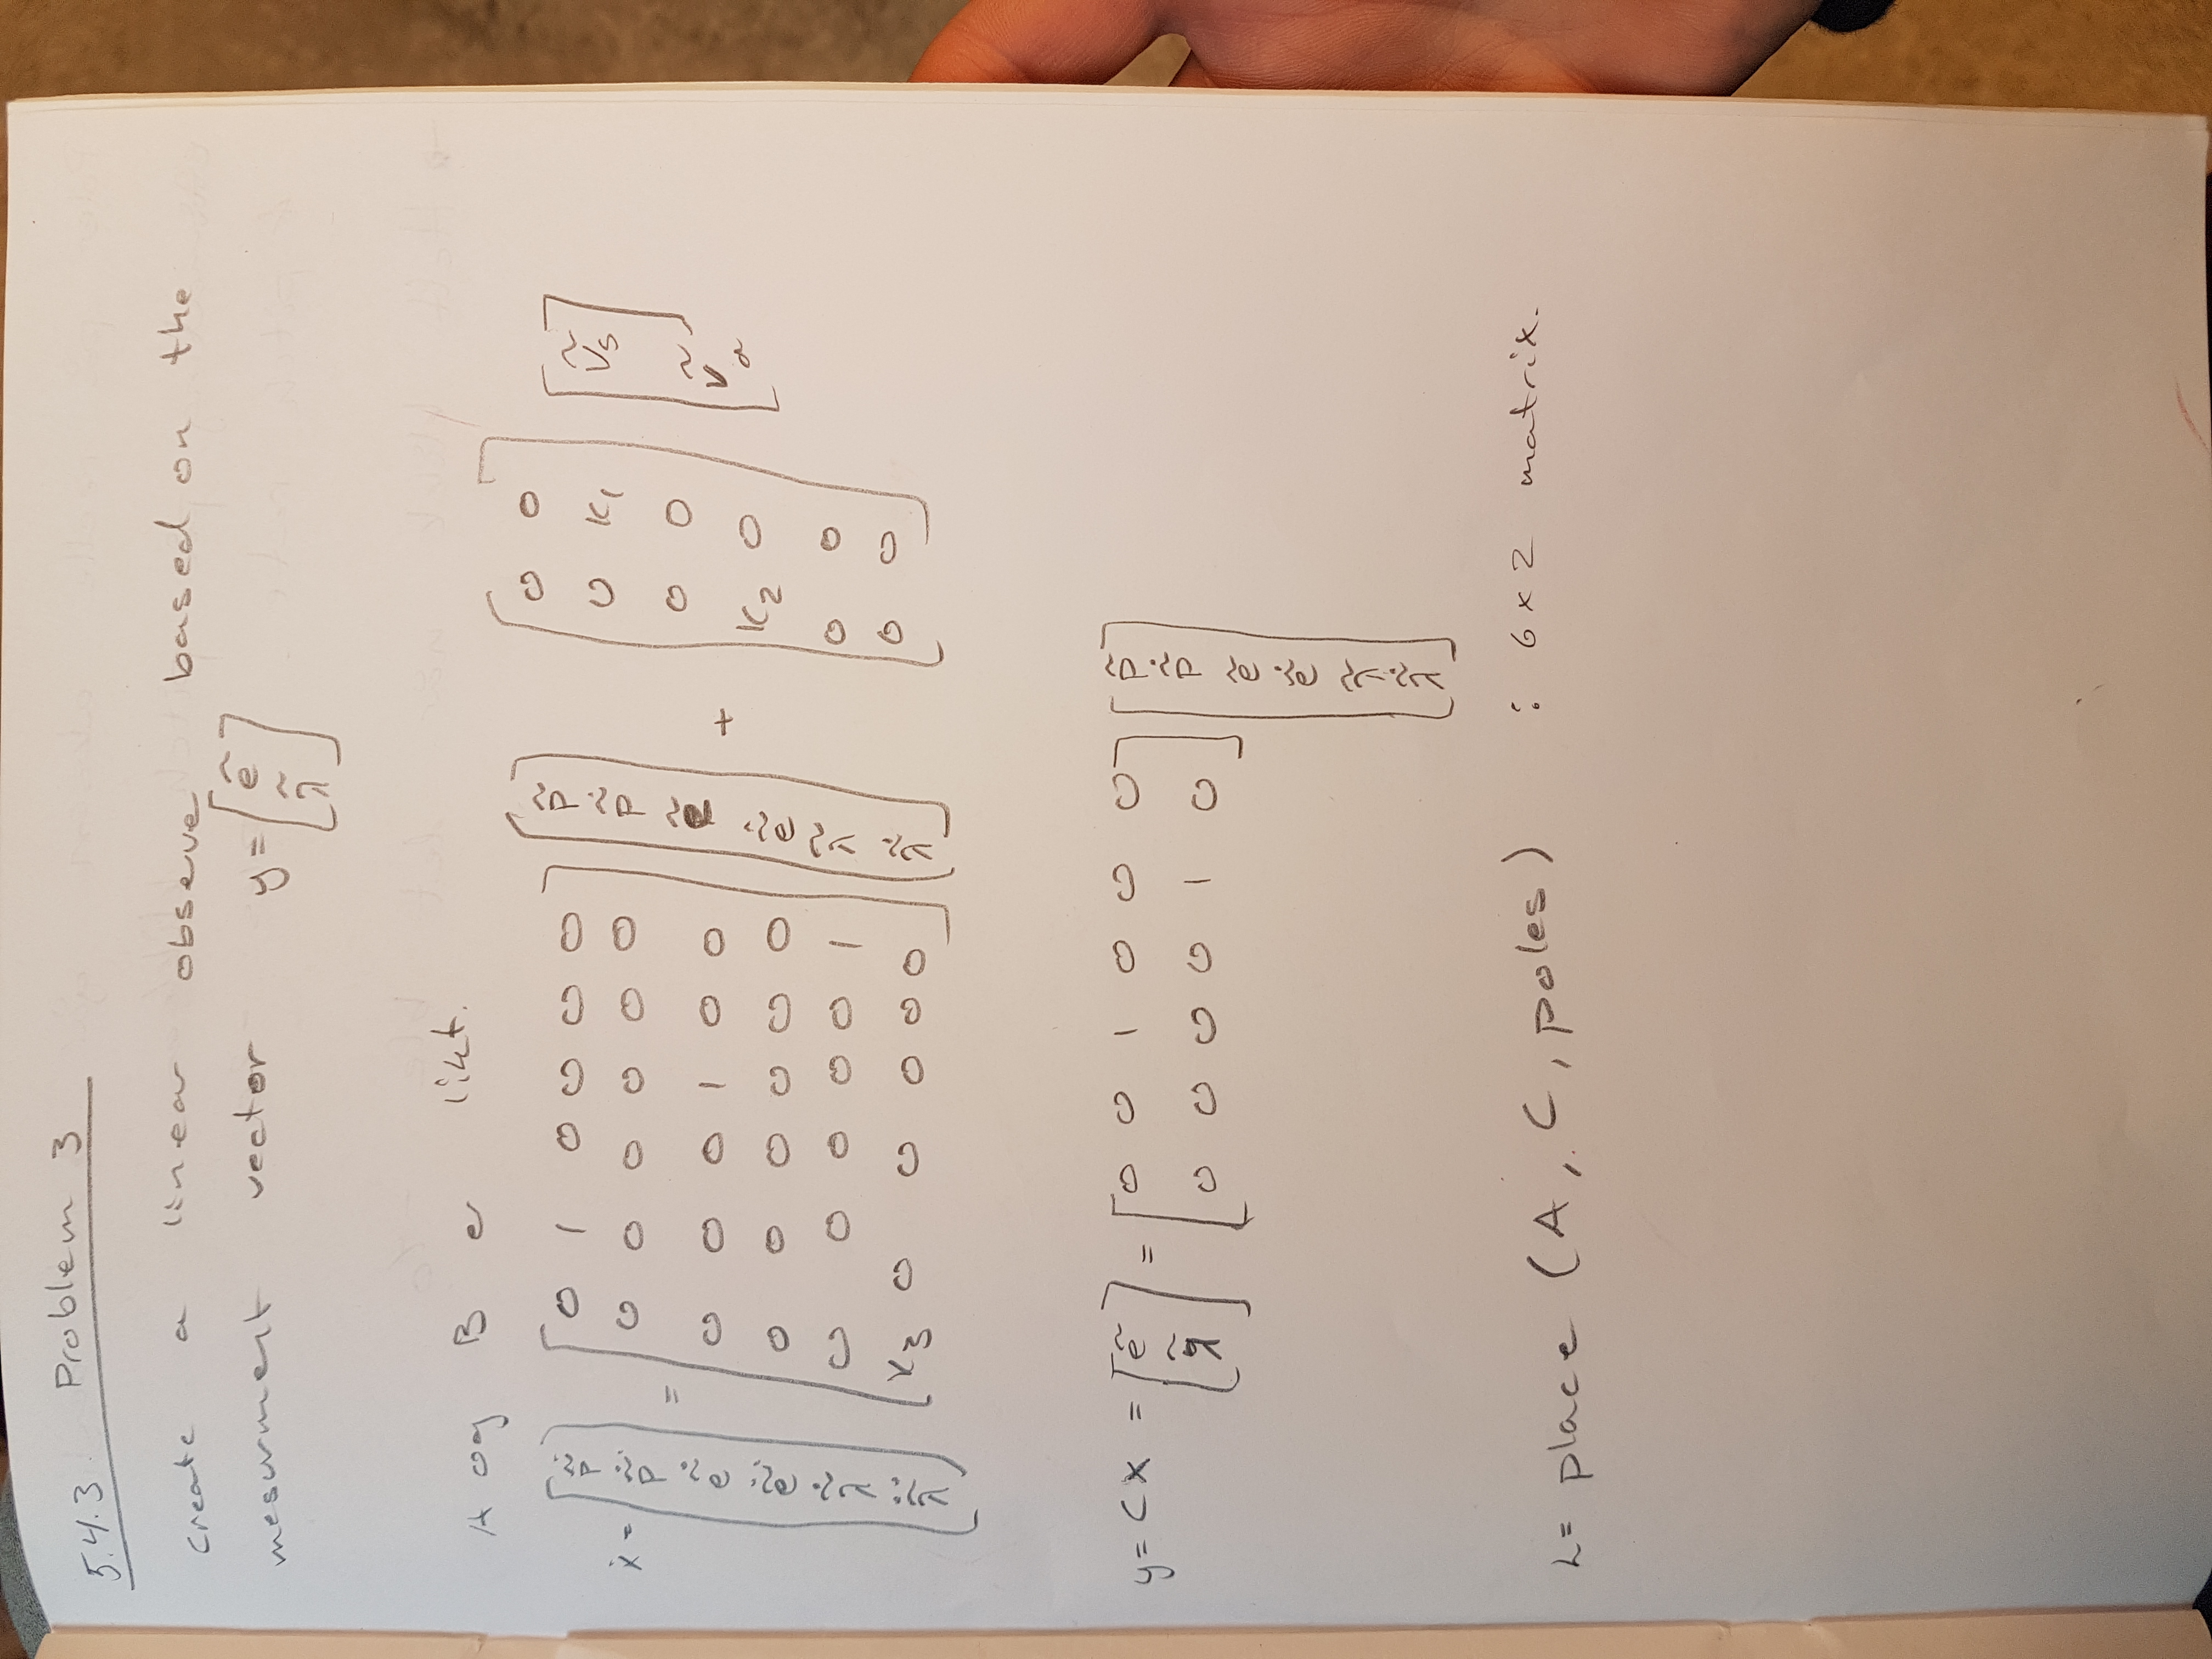 5.4.3. Problem 3
create a linear observe based on the
mesurment vector y = [ẽ; λ̃]
A og B er likt.
ẋ = [p̃̇; p̃̈; ẽ̇; ẽ̈; λ̃̇; λ̃̈] = [0 1 0 0 0 0; 0 0 0 0 0 0; 0 0 0 1 0 0; 0 0 0 0 0 0; 0 0 0 0 0 1; K3 0 0 0 0 0] [p̃; p̃̇; ẽ; ẽ̇; λ̃; λ̃̇] + [0 0; 0 K1; 0 0; K2 0; 0 0; 0 0] [Ṽs; Ṽa]
y = Cx = [ẽ; λ̃] = [0 0 1 0 0 0; 0 0 0 0 1 0] [p̃; p̃̇; ẽ; ẽ̇; λ̃; λ̃̇]
L = place (A, C, poles) : 6x2 matrix.